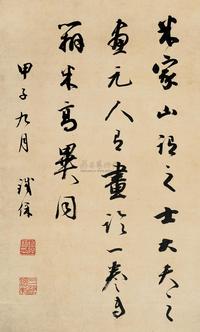 米家山謂之士大夫之
畫元人有畫論一卷專
辨米高異同
甲子九月 鐵保